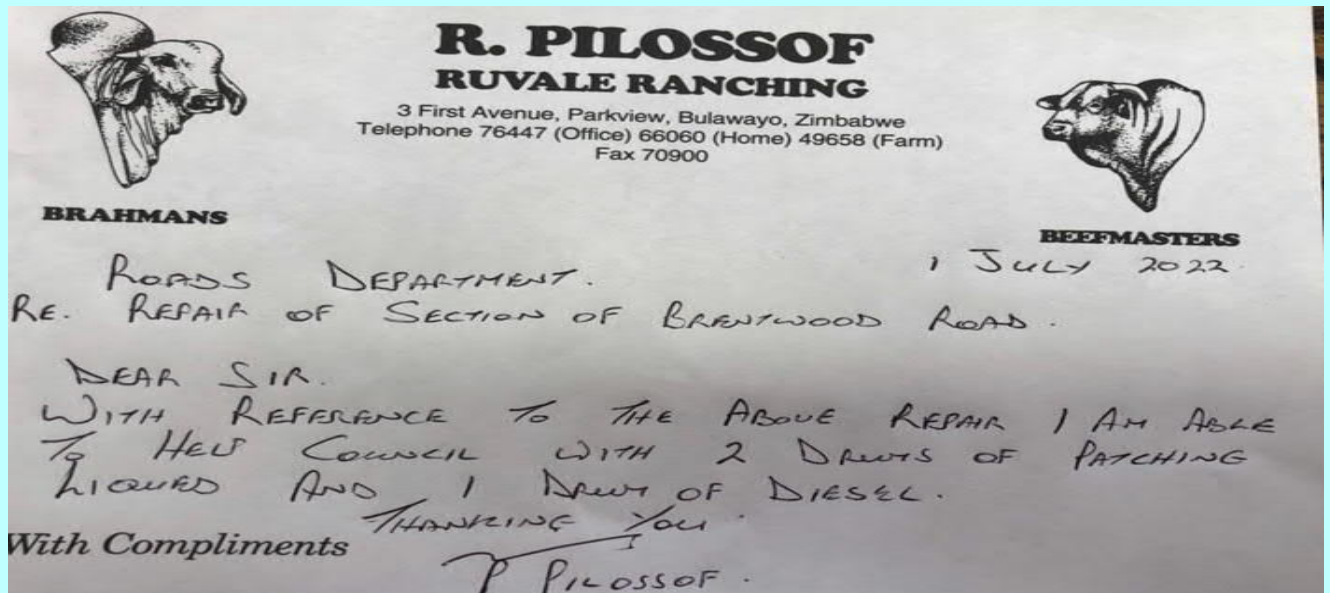 R. PILOSSOF
RUVALE RANCHING
3 First Avenue, Parkview, Bulawayo, Zimbabwe
Telephone 76447 (Office) 66060 (Home) 49658 (Farm)
Fax 70900
BRAHMANS
BEEFMASTERS
1 JULY 2022.
ROADS DEPARTMENT.
RE. REPAIR OF SECTION OF BRENTWOOD ROAD.
DEAR SIR.
WITH REFERENCE TO THE ABOVE REPAIR I AM ABLE
TO HELP COUNCIL WITH 2 DRUMS OF PATCHING
LIQUED AND 1 DRUM OF DIESEL.
THANKING YOU.
With Compliments
P PILOSSOF.